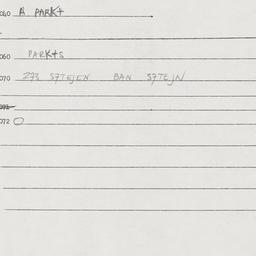 060 A PARKT
060 PARKTS
070 273 S7TEJEN BAN S7TEJN
071
072 O